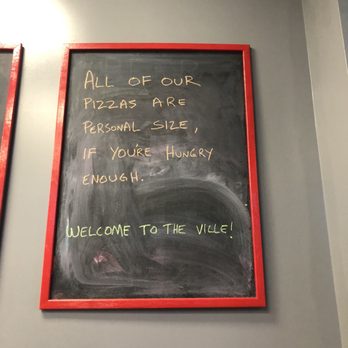 ALL OF OUR
PIZZAS ARE
PERSONAL SIZE,
IF YOU'RE HUNGRY
ENOUGH.
WELCOME TO THE VILLE!